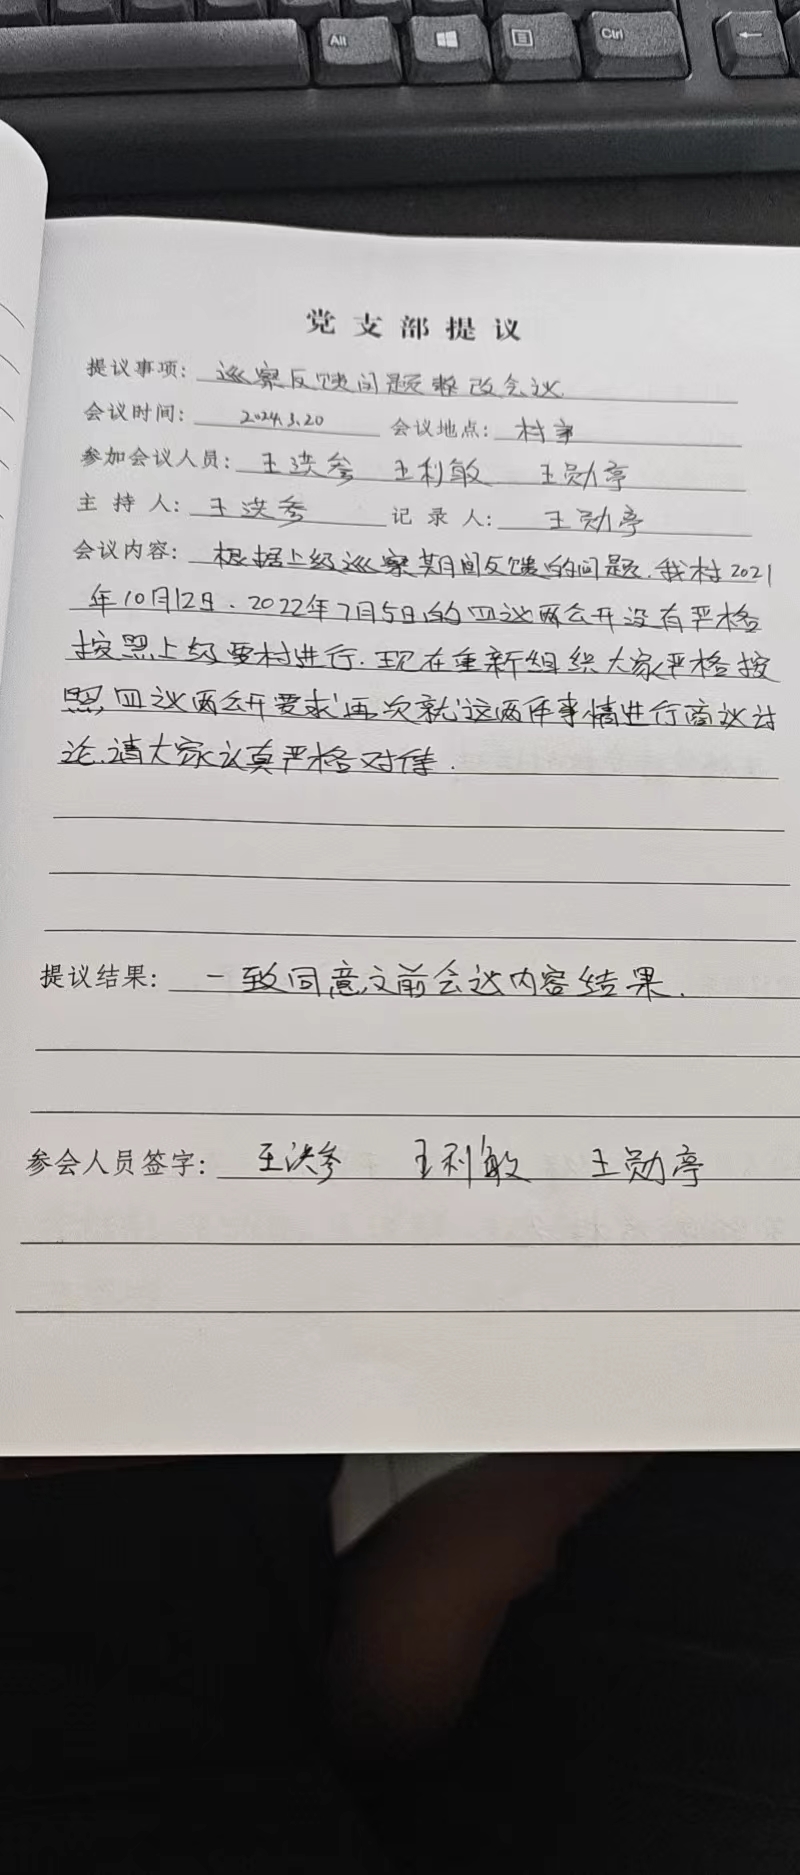 Alt
Ctrl
←
党支部提议
提议事项: 巡察反馈问题整改会议
会议时间: 2024.3.20 会议地点: 村室
参加会议人员: 王洪参 王利敏 王勋亭
主持人: 王洪参 记录人: 王勋亭
会议内容: 根据上级巡察期间反馈的问题.我村2021
年10月12日、2022年7月5日的四议两公开没有严格
按照上级要村进行.现在重新组织大家严格按
照四议两公开要求再次就这两件事情进行商议讨
论.请大家认真严格对待.
提议结果: 一致同意文前会议内容结果.
参会人员签字: 王洪参 王利敏 王勋亭